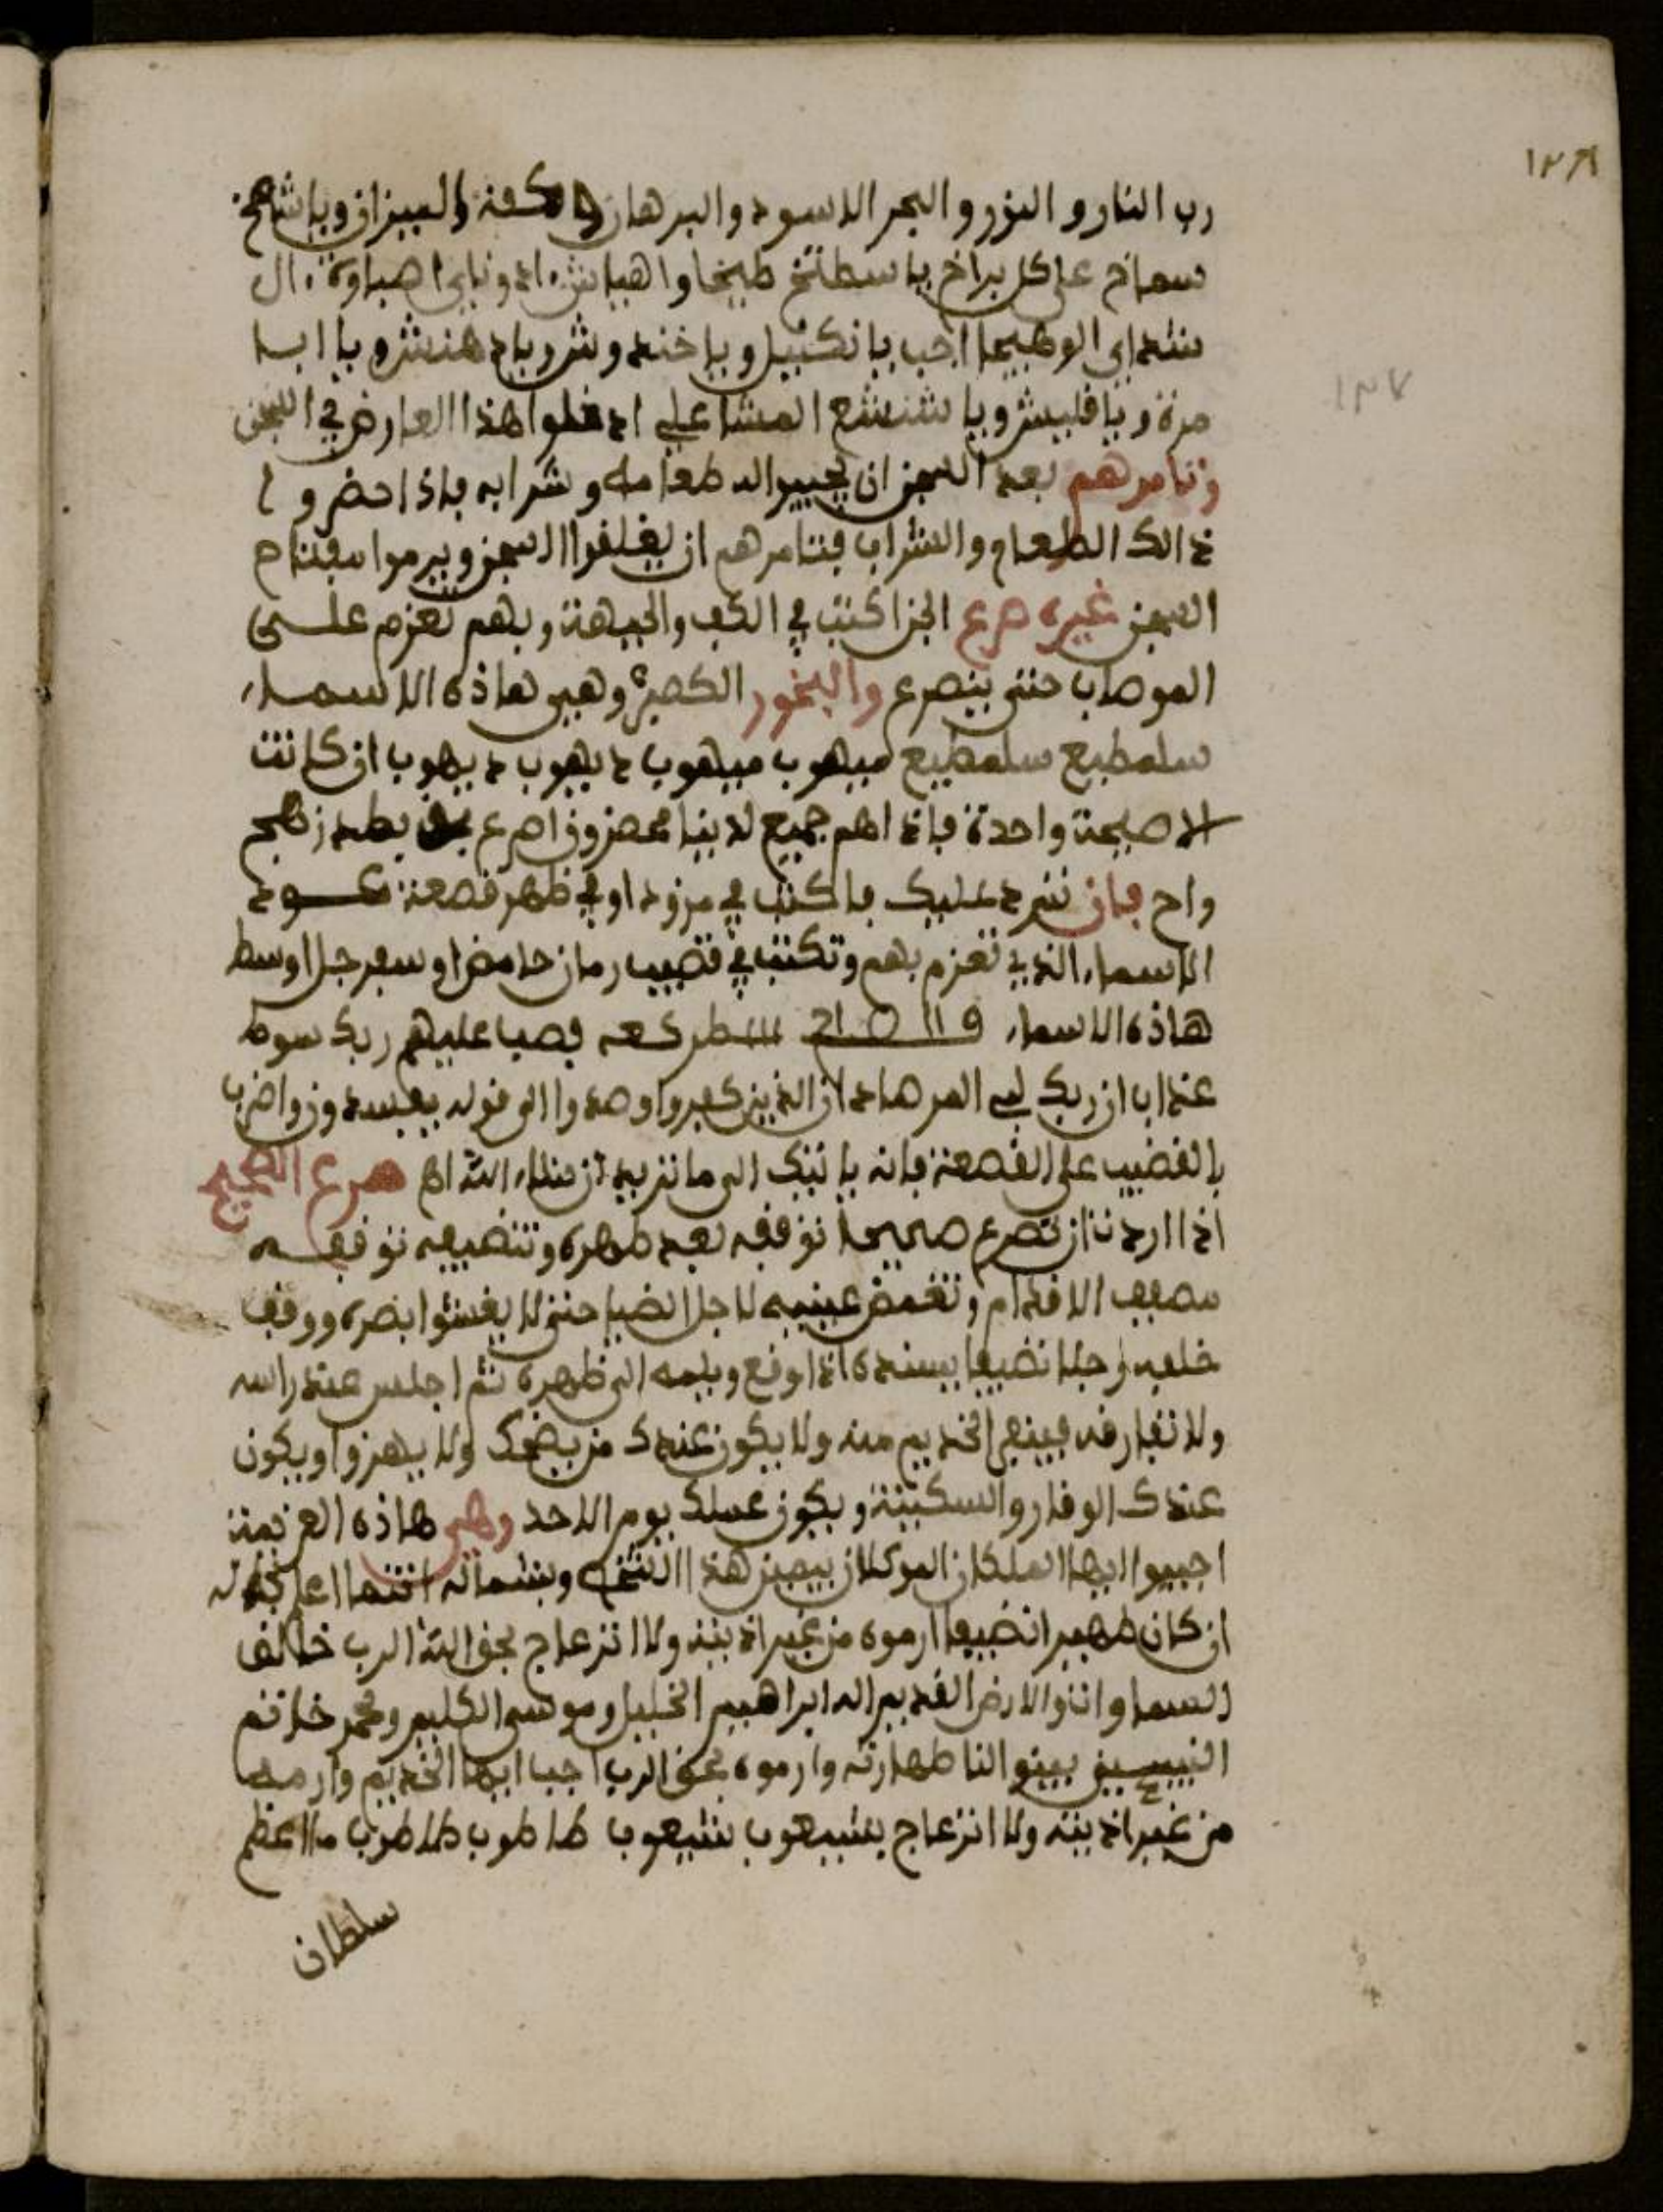 ١٣٨
١٣٧
رب النار والنور والبحر الاسود والبرهان كفة الميزان ويا شمخ
سماخ على كل براخ يا سطتخ طيخا واهيا شراه ادوناي اصباوة ال
شداي الوهيما اجب يا نكيل ويا خندوش ويا دهنش ويا ابا
مرة ويا قليش ويا شعشع المشاعلي ادخلوا هذا العارض في السجن
وتامرهم بعد السجن ان يجيبوا له طعامه وشرابه فاذا احضروا
ذالك الطعام والشراب فتامرهم ان يغلفوا السجن ويرموا مفتاح
السجن غيره صرع الجن اكتب في الكف والجبهة وبهم تعزم على
الموصاب حتى ينصرع والبخور الكصبر وهي هاذه الاسماء
سلمطيع سلمطيع ميهوب ميهوب ديهوب ديهوب ان كانت
الا صيحة واحدة فاذاهم جميع لدينا محضرون اصرع بطد زهج
واح فان تمرد عليك فاكتب في مزود او في ظهر قصعة عود
الاسماء الذي تعزم بهم وتكتب في قضيب رمان حامض او سفرجل اوسط
هاذه الاسماء فصب عليهم ربك سوط
عذاب ان ربك لبالمرصاد ان الذين كفروا وصدوا الى قوله يفسدون واضرب
بالقضيب على القصعة فانه ياتيك الى ما تريد ان شاء الله اه صرع الصحيح
اذا اردت ان تصرع صحيحا توقفه بعد طهره وتنضيفه توقفه
مصفف الاقدام وتغمض عينيه لاجل الضيا حتى لا يغشوا بصره ووقف
خلفه رجلا نضيفا يسنده اذا وقع ويلمه الى ظهره ثم اجلس عند راسه
ولا تفارقه فينعى الخديم منه ولا يكون عندك من يضحك ولا يهزوا ويكون
عندك الوقار والسكينة ويكون عملك يوم الاحد وهي هاذه العزيمة
اجيبوا ايها الملكان الموكلان بيمين هذا الشخص وبشماله انتما اعلم بحاله
ان كان طهيرا نضيفا ارموه من غير اذية ولا انزعاج بحق الله الرب خالف
السماوات والارض القديم اله ابراهيم الخليل وموسى الكليم ومحمد خاتم
النبيين بينوا لنا طهارته وارموه بحق الرب اجب ايها الخديم وارميه
من غير اذية ولا انزعاج بشيعوب شيعوب طاطوب طاطوب ما اعظم
سلطان